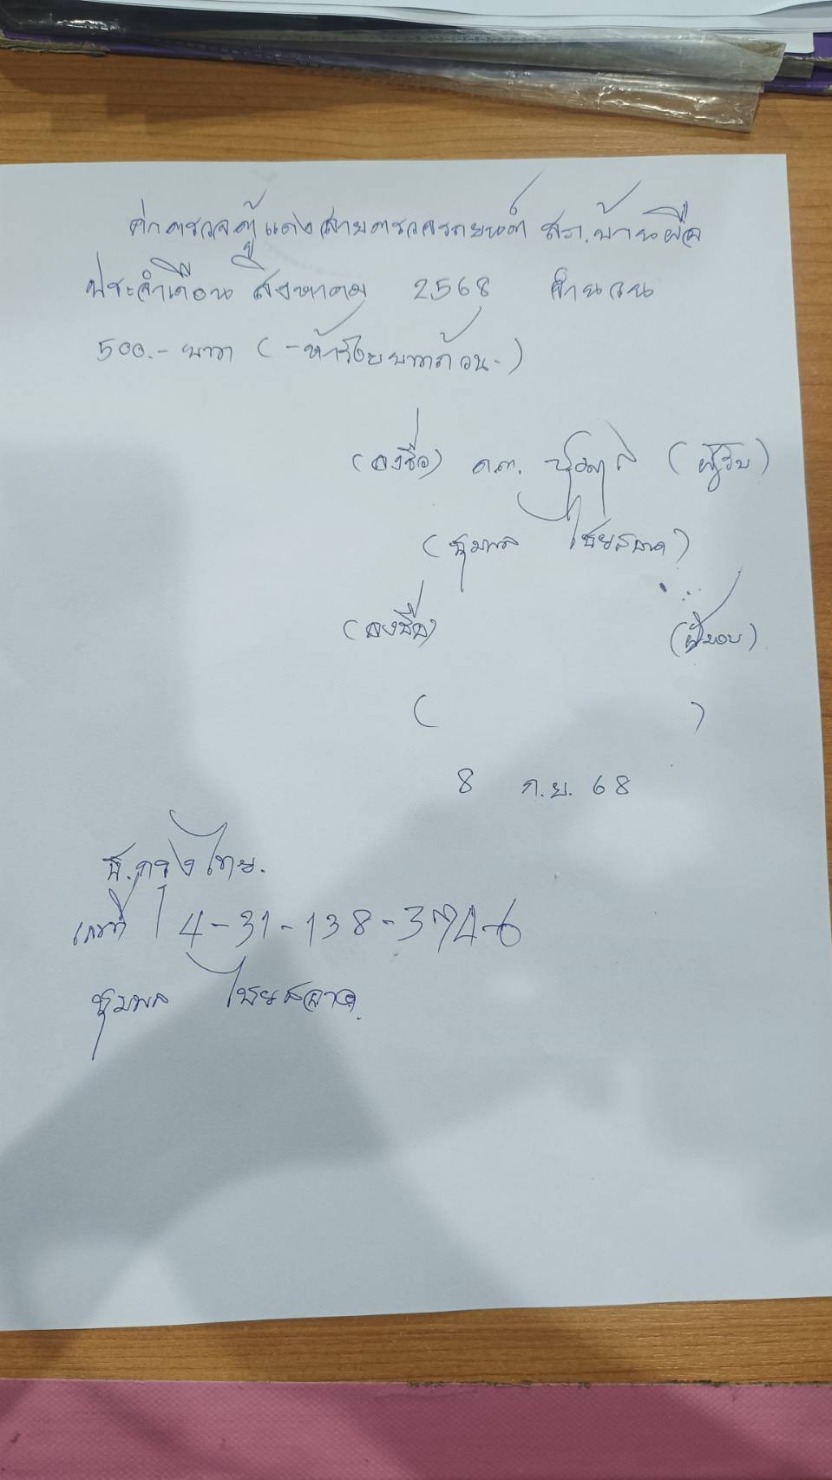 ค่าตรวจตู้แดงสายตรวจรถยนต์ สภ.บ้านผือ
ประจำเดือน สิงหาคม 2568 จำนวน
500.- บาท (-ห้าร้อยบาทถ้วน-)
(ลงชื่อ) ด.ต. (ผู้รับ)
(ชุมพล ไชยสลาด)
(ลงชื่อ) (ผู้มอบ)
( )
8 ก.ย. 68
ธ.กรุงไทย.
เลขที่ 4-31-138-3794-6
ชุมพล ไชยสลาด.